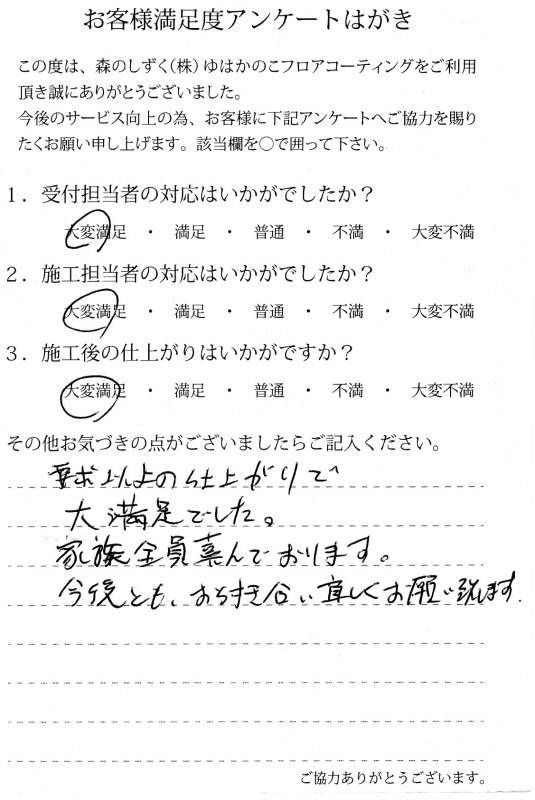 お客様満足度アンケートはがき
この度は、森のしずく(株)ゆはかのこフロアコーティングをご利用
頂き誠にありがとうございました。
今後のサービス向上の為、お客様に下記アンケートへご協力を賜り
たくお願い申し上げます。該当欄を○で囲って下さい。
1．受付担当者の対応はいかがでしたか？
大変満足 ・ 満足 ・ 普通 ・ 不満 ・ 大変不満
2．施工担当者の対応はいかがでしたか？
大変満足 ・ 満足 ・ 普通 ・ 不満 ・ 大変不満
3．施工後の仕上がりはいかがですか？
大変満足 ・ 満足 ・ 普通 ・ 不満 ・ 大変不満
その他お気づきの点がございましたらご記入ください。
要求以上の仕上がりで
大満足でした。
家族全員喜んでおります。
今後とも、お付き合い宜しくお願い致します.
ご協力ありがとうございます。